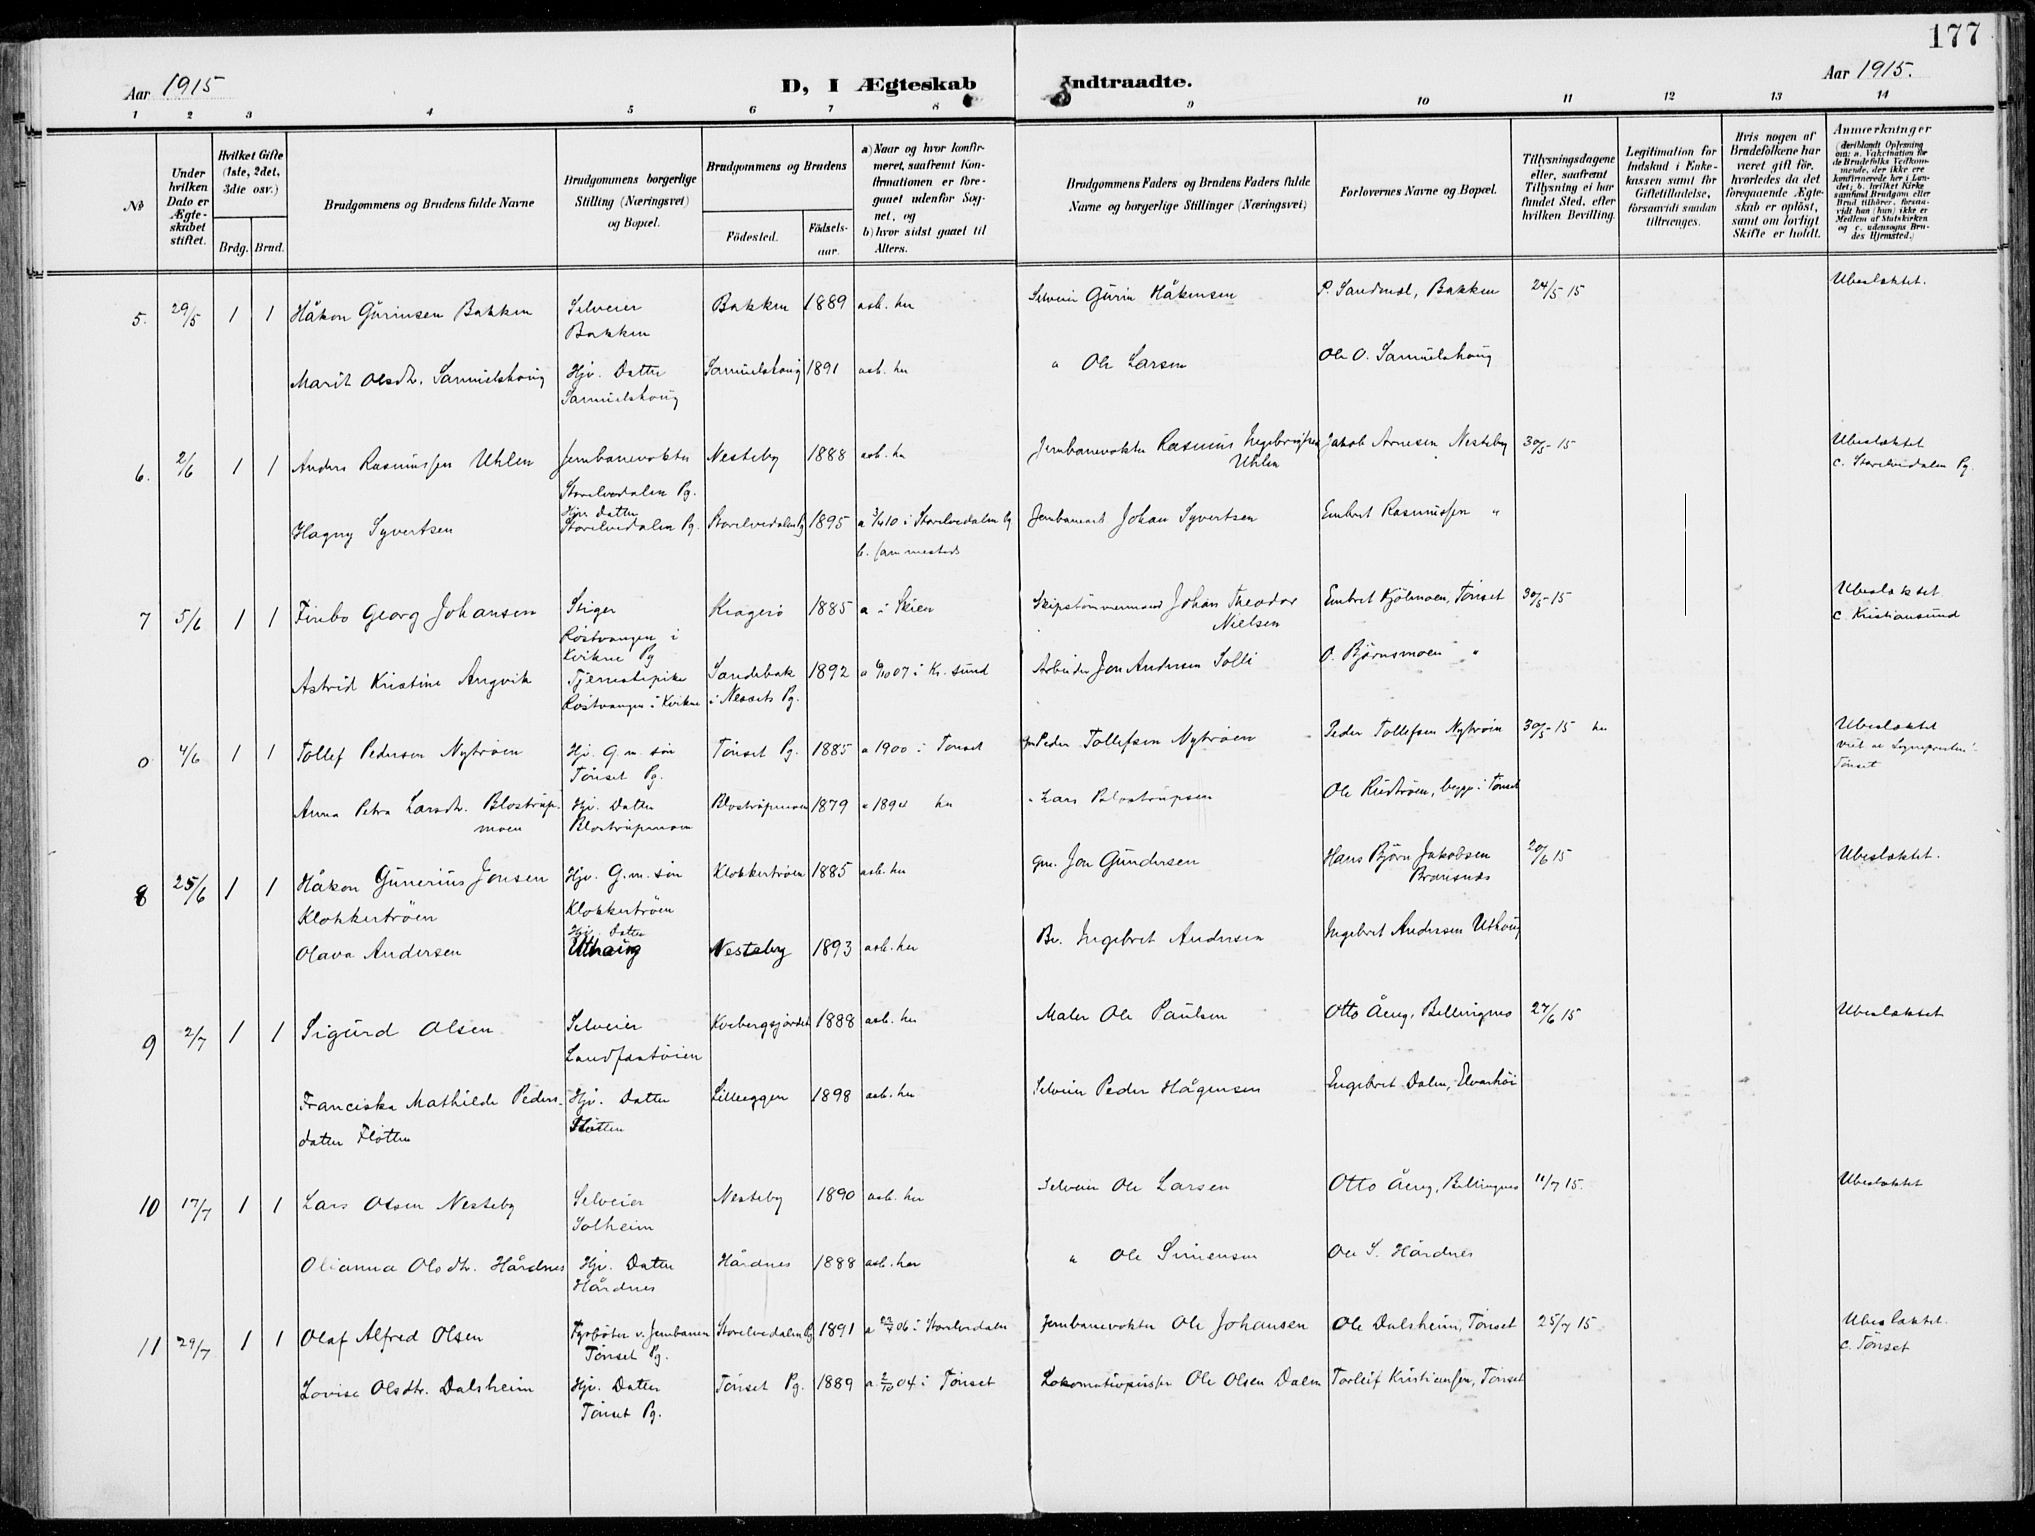 177
Aar 1915
D, I Ægteskab Indtraadte.
Aar 1915.
1 2 3 4 5 6 7 8 9 10 11 12 13 14
№
Under hvilken Dato er Ægteskabet stiftet.
Hvilket Gifte (1ste, 2det, 3die osv.)
Brdg. Brud.
Brudgommens og Brudens fulde Navne
Brudgommens borgerlige Stilling (Næringsvei) og Bopæl.
Brudgommens og Brudens
Fødested.
Fødselsaar.
a) Naar og hvor konfirmeret, saafremt Konfirmationen er foregaaet udenfor Sognet, og
b) hvor sidst gaaet til Alters.
Brudgommens Faders og Brudens Faders fulde Navne og borgerlige Stillinger (Næringsvei)
Forlovernes Navne og Bopæl.
Tillysningsdagene eller, saafremt Tillysning ei har fundet Sted, efter hvilken Bevilling.
Legitimation for Indskud i Enkekassen samt for Giftetilladelse, forsaavidt saadan tiltrænges.
Hvis nogen af Brudefolkene har været gift før, hvorledes da det foregaaende Ægteskab er opløst, samt om lovligt Skifte er holdt.
Anmerkninger (deriblandt Oplysning om: a. Vakcination for de Brudefolks Vedkommende, der ikke ere konfirmerede her i Landet; b. hvilket Kirkesamfund Brudgom eller Brud tilhører, forsaavidt han (hun) ikke er Medlem af Statskirken og c. udensogns Brudes Hjemsted.)
5. 29/5 1 1 Håkon Gurinsen Bakken Selveier Bakken Bakken 1889 asb. her Selveier Gurin Håkensen P. Sandmæl, Bakken 24/5 15 Ubeslæktet.
Marit Olsdtr. Samuelshoug Hjv. Datter Samuelshoug Samuelshoug 1891 asb. her " Ole Larsen Ole O. Samuelshoug
6. 2/6 1 1 Anders Rasmussen Uhlen Jernbanevokter Storelvedalen Pg. Nesteby 1888 asb. her Jernbanevokter Rasmus Ingebrigtsen Uhlen Jakob Arnesen Nesteby 30/5 15 Ubeslæktet
c. Storelvedalen Pg.
Hagny Syvertsen Hjv. Datter Storelvedalen Pg. Storelvedalen Pg 1895 a 3/4 10 i Storelvedalen Pg b. sammesteds Jernbanearb Johan Syvertsen Embret Rasmussen "
7 5/6 1 1 Finbo Georg Johansen Stiger Røstvangen i Kvikne Pg Kragerø 1885 a i Skien Skipstømmermand Johan Theodor Nielsen Embret Kjølmoen, Tønset 30/5 15 Ubeslæktet
c. Kristiansund
Astrid Kristine Angvik Tjenestepike Røstvangen i Kvikne Sandebak i Nessets Pg. 1892 a 6/10 07 i Kr. sund Arbeider Jon Andersen Solli O. Bjørnsmoen "
0 4/6 1 1 Tollef Pedersen Nytrøen Hjv. G.m. søn Tønset Pg. Tønset Pg. 1885 a 1900 i Tønset Peder Tollefsen Nytrøen Peder Tollefsen Nytrøen 30/5 15 her Ubeslæktet
viet av Sognepresten i Tønset
Anna Petra Larsdtr. Blostrupmoen Hjv. Datter Blostrupmoen Blostrupmoen 1879 a 1894 her " Lars Blostrupsen Ole Rudtrøen, begge i Tønset
8 25/6 1 1 Håkon Gunerius Jonsen Klokkertrøen Hjv. G.m. søn Klokkertrøen Klokkertrøen 1885 asb. her gm. Jon Gundersen Hans Bjørn Jakobsen 20/6 15 Ubeslæktet.
Olava Andersen Hjv. Datter Uthaug Nesteby 1893 asb. her Br. Ingebret Andersen Ingebret Andersen Uthoug
9 2/7 1 1 Sigurd Olsen Selveier Landfastøien Kvebergsjordet 1888 asb. her Maler Ole Paulsen Otto Åeng, Bellingmo 27/6 15 Ubeslæktet
Franciska Mathilde Pedersdatter Fløtten Hjv. Datter Fløtten Lilleeggen 1898 asb. her Selveier Peder Hågensen Engebret Dalen, Elvarhøi
10 17/7 1 1 Lars Olsen Nesteby Selveier Solheim Nesteby 1890 asb. her Selveier Ole Larsen Otto Åeng, Bellingmo 11/7 15. Ubeslæktet
Olianna Olsdtr. Hårdnes Hjv. Datter Hårdnes Hårdnes 1888 asb. her " Ole Simensen Ole S. Hårdnes
11 29/7 1 1 Olaf Alfred Olsen Fyrbøter v. Jernbanen Tønset Pg. Storelvedalen Pg 1891 a 06 i Storelvedalen Jernbanevokter Ole Johansen Ole Dalsheim, Tønset 25/7 15 Ubeslæktet.
c. Tønset
Lovise Olsdtr. Dalsheim Hjv. Datter Tønset Pg. Tønset Pg. 1889 a 2/10 04 i Tønset Lokomotivpusser Ole Olsen Dalen Torleif Kristiansen, Tønset